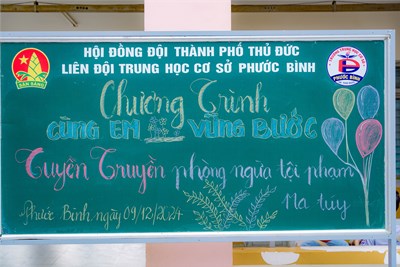 HỘI ĐỒNG ĐỘI THÀNH PHỐ THỦ ĐỨC
LIÊN ĐỘI TRUNG HỌC CƠ SỞ PHƯỚC BÌNH
SẴN SÀNG
PHƯỚC BÌNH
Chương Trình
CÙNG EM VỮNG BƯỚC
Tuyên Truyền phòng ngừa tội phạm
Ma túy
Phước Bình ngày 09/12/2024